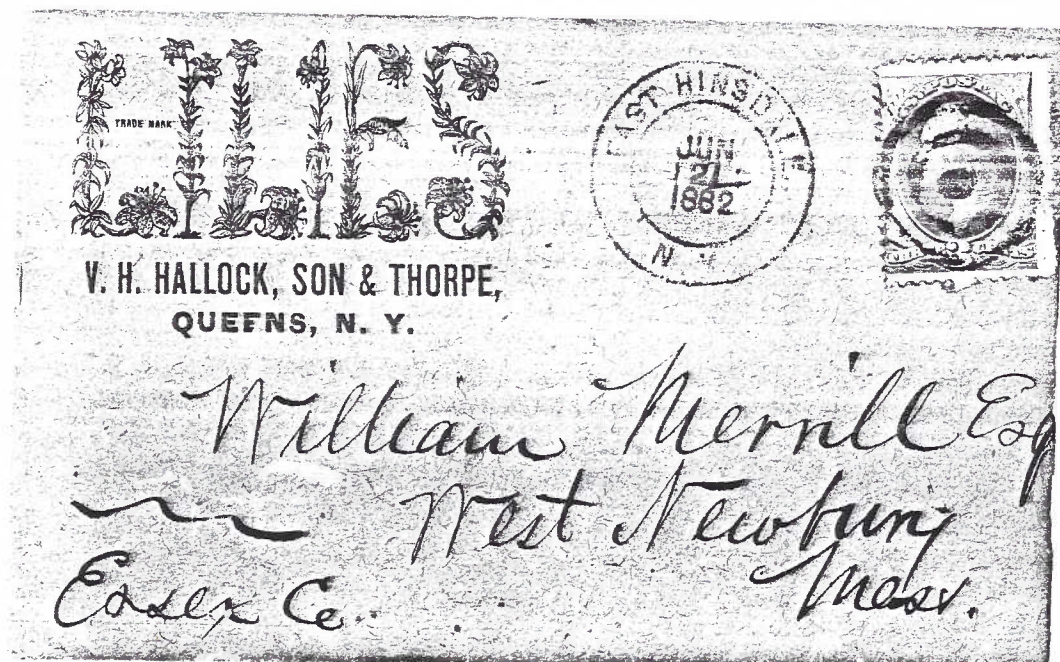 LILIES
TRADE MARK
V. H. HALLOCK, SON & THORPE,
QUEENS, N. Y.
EAST HINSDALE
JUN
21
1882
N. Y.
William Merrill Esq
West Newbury
Mass.
Essex Co.